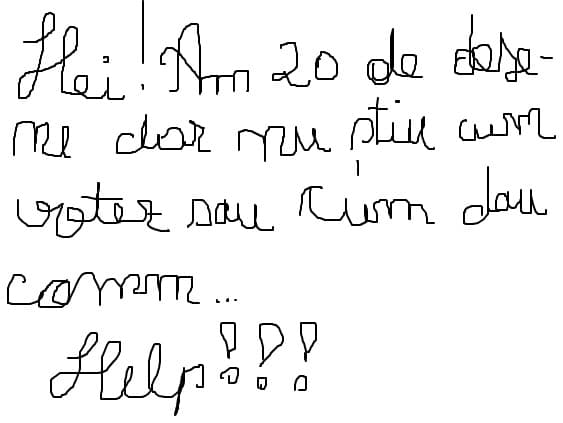 Hei! Am 20 de dese-
ne dar nu știu cum
votez sau cum dau
comm...
Help!!!